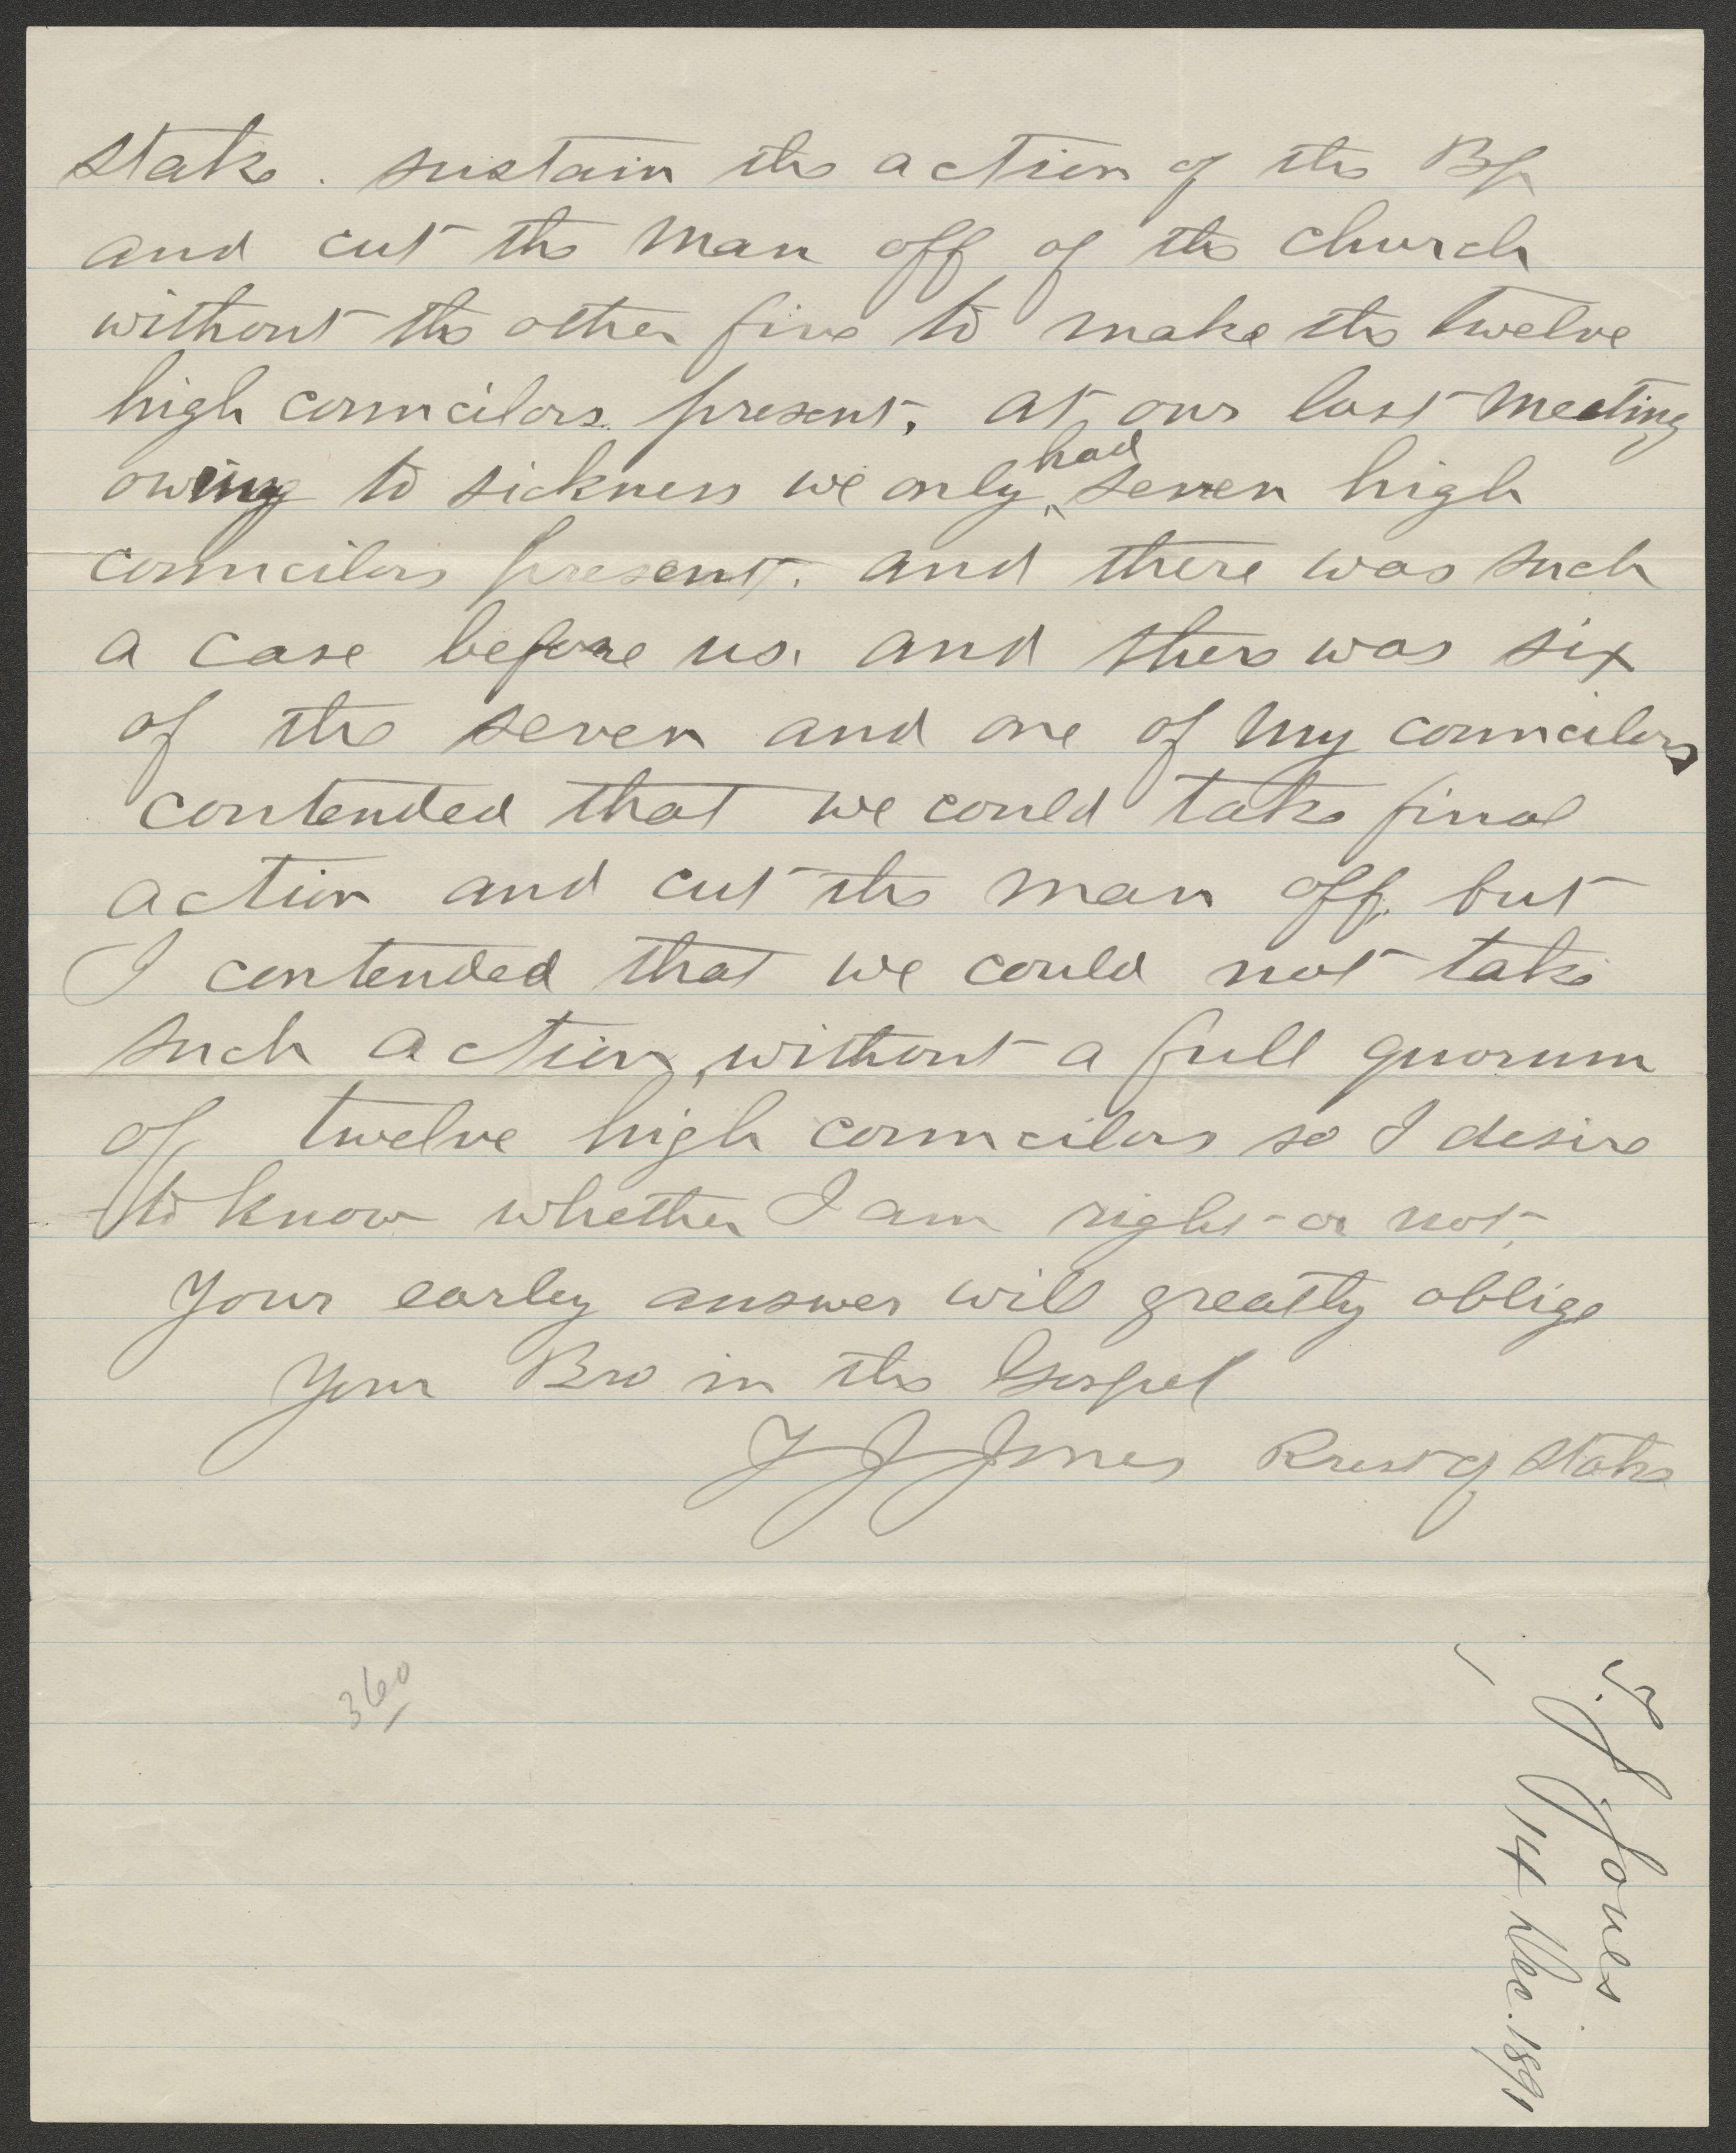 stake. sustain the action of the Bp
and cut the man off of the church
without the other five to make the twelve
high councilors present. at our last meeting
owing to sickness we only had seven high
councilors present. and there was such
a case before us. and there was six
of the seven and one of my councilors
contended that we could take final
action and cut the man off, but
I contended that we could not take
such action, without a full quorum
of twelve high councilors so I desire
to know whether I am right or not.
Your early answer will greatly oblige
Your Bro in the Gospel
T J Jones Prest of Stake
360
T. J. Jones
14 Dec. 1891